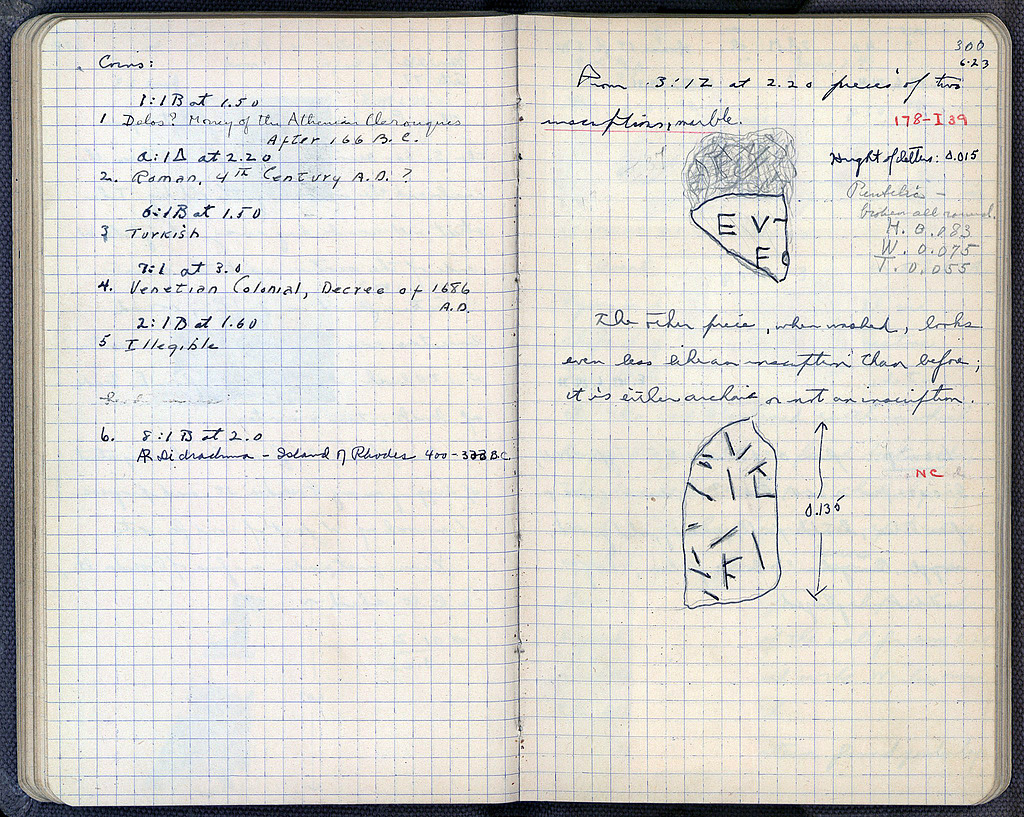 Coins:
1:1B at 1.50
1 Delos? Money of the Athenian Clerouques
After 166 B.C.
a:1Δ at 2.20
2. Roman, 4th Century A.D. ?
6:1B at 1.50
3 Turkish
7:1 at 3.0
4. Venetian Colonial, Decree of 1686
A.D.
2:1B at 1.60
5 Illegible
6. 8:1B at 2.0
AR Didrachma - Island of Rhodes 400-333 B.C.
300
6-23
From 3:12 at 2.20 pieces of two
inscriptions, marble.
178-I 39
Height of letters: 0.015
Pentelic -
broken all round.
H. 0.083
W. 0.075
T. 0.055
E V
F
The other piece, when washed, looks
even less like an inscription than before;
it is either archaic or not an inscription.
NC
0.135